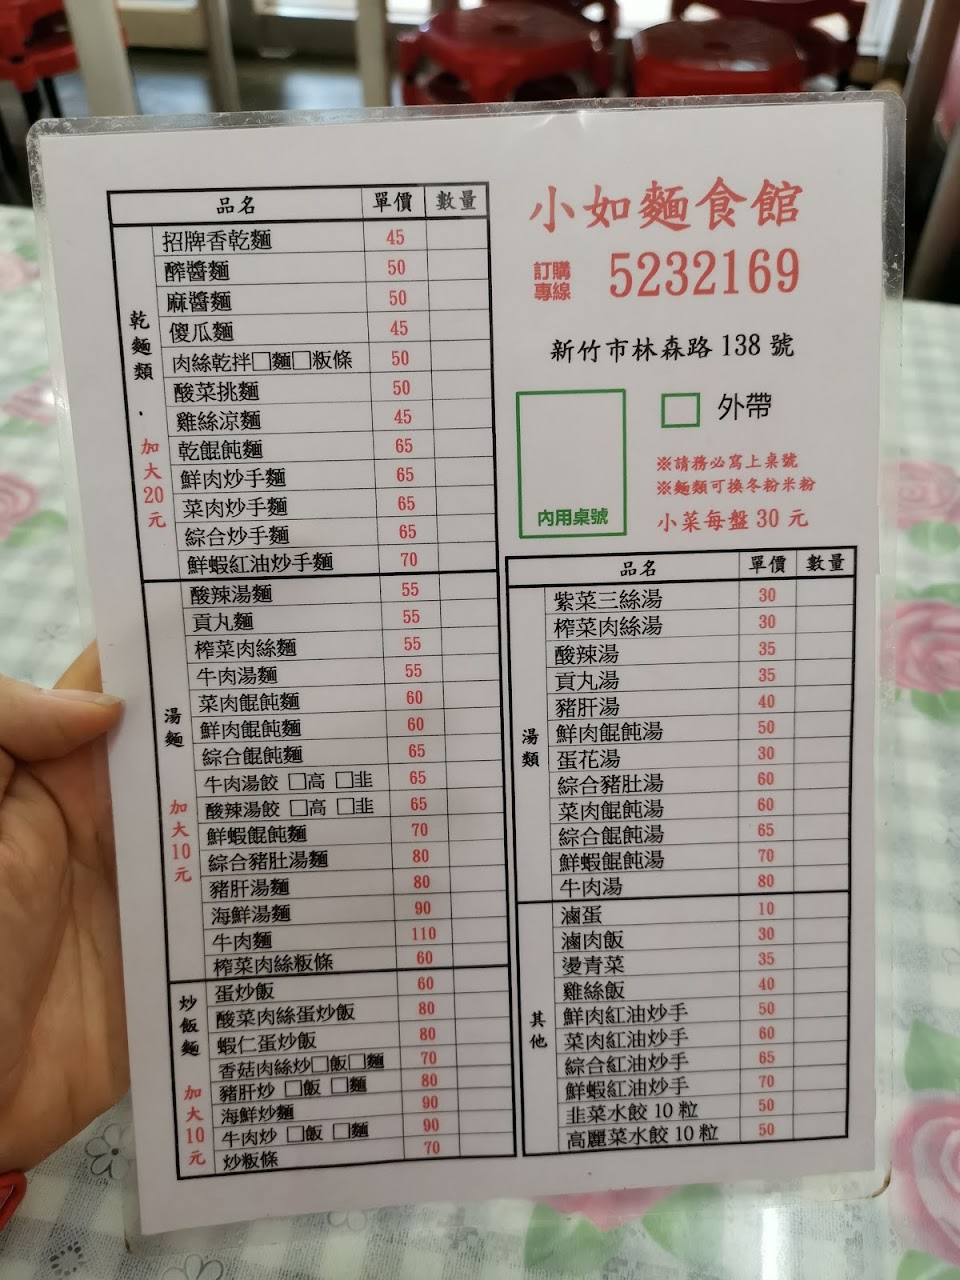 品名 單價 數量
乾麵類．加大20元
招牌香乾麵 45
醡醬麵 50
麻醬麵 50
傻瓜麵 45
肉絲乾拌□麵□粄條 50
酸菜挑麵 50
雞絲涼麵 45
乾餛飩麵 65
鮮肉炒手麵 65
菜肉炒手麵 65
綜合炒手麵 65
鮮蝦紅油炒手麵 70
湯麵 加大10元
酸辣湯麵 55
貢丸麵 55
榨菜肉絲麵 55
牛肉湯麵 55
菜肉餛飩麵 60
鮮肉餛飩麵 60
綜合餛飩麵 65
牛肉湯餃 □高 □韭 65
酸辣湯餃 □高 □韭 65
鮮蝦餛飩麵 70
綜合豬肚湯麵 80
豬肝湯麵 80
海鮮湯麵 90
牛肉麵 110
榨菜肉絲粄條 60
炒飯麵 加大10元
蛋炒飯 60
酸菜肉絲蛋炒飯 80
蝦仁蛋炒飯 80
香菇肉絲炒□飯□麵 70
豬肝炒 □飯 □麵 80
海鮮炒麵 90
牛肉炒 □飯 □麵 90
炒粄條 70
小如麵食館
訂購專線 5232169
新竹市林森路 138 號
內用桌號
□ 外帶
※請務必寫上桌號
※麵類可換冬粉米粉
小菜每盤 30 元
品名 單價 數量
湯類
紫菜三絲湯 30
榨菜肉絲湯 30
酸辣湯 35
貢丸湯 35
豬肝湯 40
鮮肉餛飩湯 50
蛋花湯 30
綜合豬肚湯 60
菜肉餛飩湯 60
綜合餛飩湯 65
鮮蝦餛飩湯 70
牛肉湯 80
其他
滷蛋 10
滷肉飯 30
燙青菜 35
雞絲飯 40
鮮肉紅油炒手 50
菜肉紅油炒手 60
綜合紅油炒手 65
鮮蝦紅油炒手 70
韭菜水餃 10 粒 50
高麗菜水餃 10 粒 50